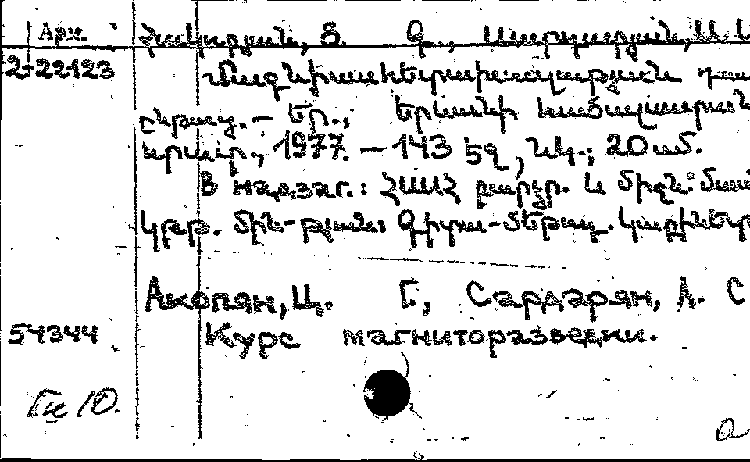 Арм. Հակոբյան, Ց. Գ., Սարդարյան, Ա. Ս
2-22423 Մագնիսահետախուզության դաս
ընթաց. — Եր., Երևանի համալսարան
հրատ., 1977. — 143 էջ, նկ.; 20 սմ.
В надзаг.: ՀՍՍՀ բարձր. և միջն. մաս
կրթ. մին-թյուն: Գիտա-մեթոդ. կաբինետ
Акопян, Ц. Г., Сардарян, А. С
54344 Курс магниторазведки.
10.